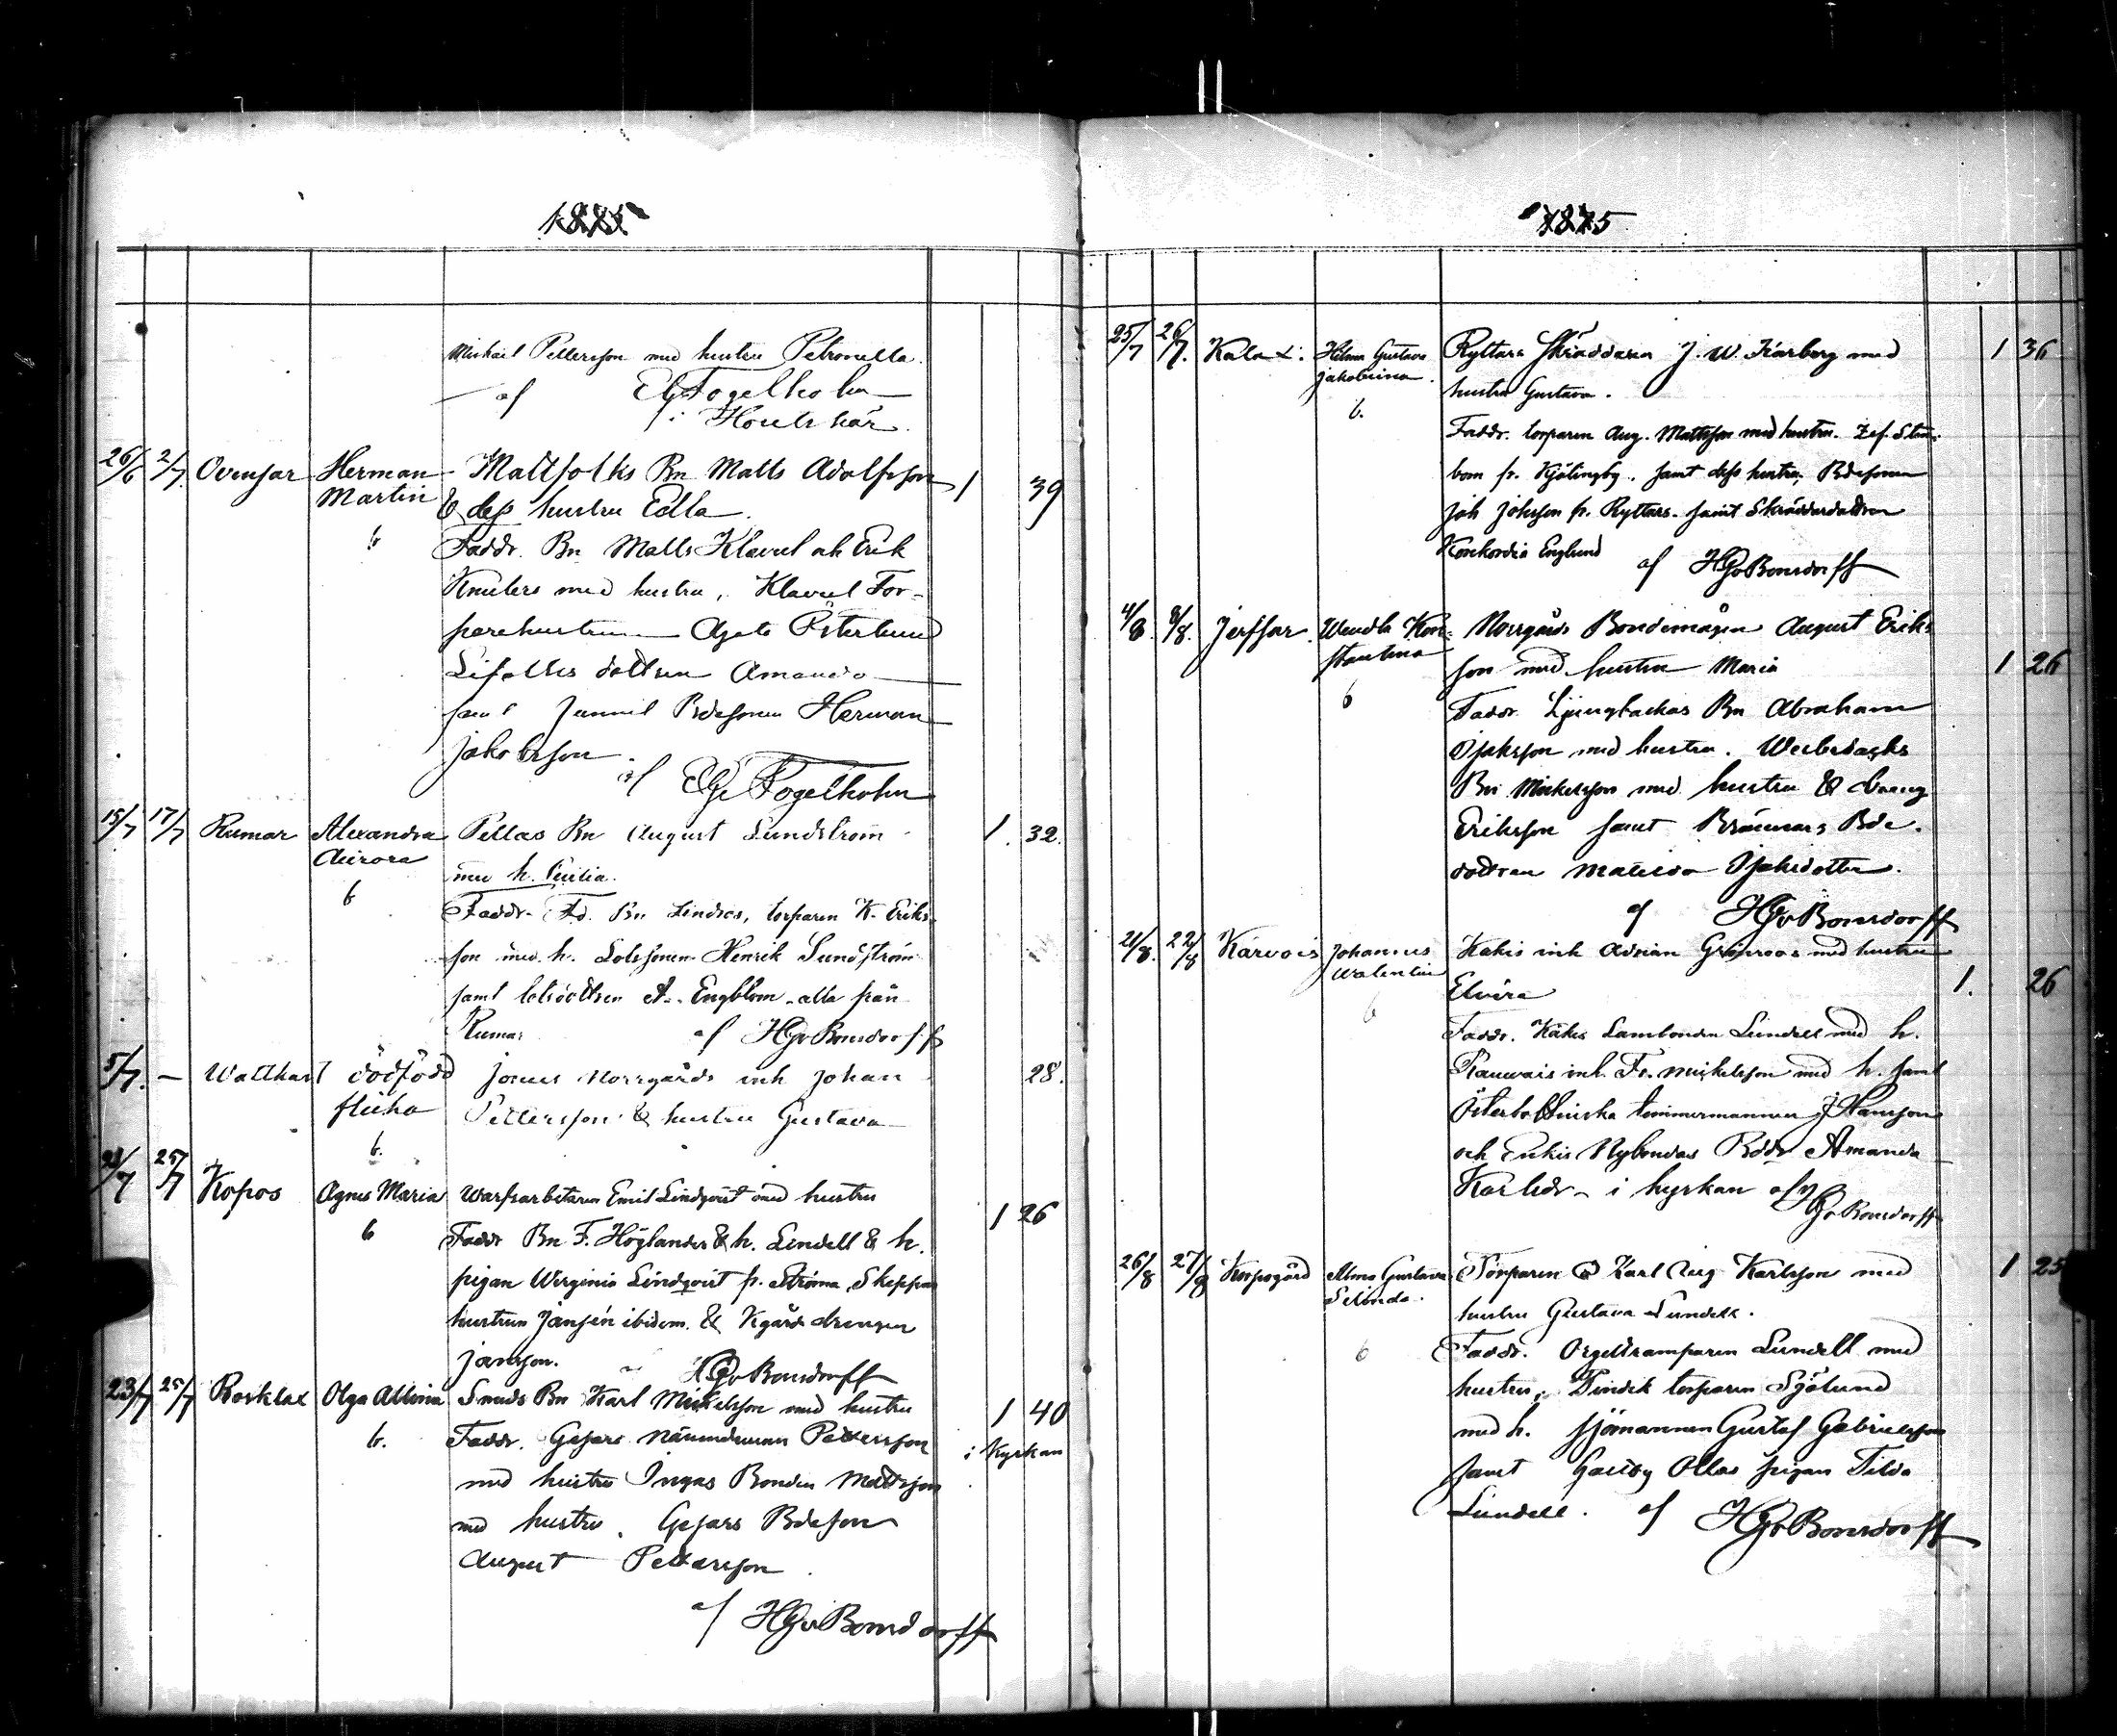 1885
Michael Pettersson med hustru Petronella.
af EG Fogelholm
i Houtskär.
26/6 2/7 Ovensor Herman Martin Mattfolks Bn Matts Adolfsson 1 39
& dess hustru Edla.
b Faddr. Bn Matts Klavus och Erik
Knuters med hustru, Klavus Tor-
parehustrun Agata Österlund
dottren Amanda
samt Jumnil Bdesonen Herman
Jakobsson.
af EG Fogelholm
15/7 17/7 Rumar Alexandra Aurora Pellas Bn August Lundström 1. 32.
med h. Cecilia.
b Faddr. Fd. Bn Lindros, torparen K. Eriks-
son med h. Lotssonen Henrik Sundström
samt lotsdottren A. Engblom alla från
Rumar af HG v Bonsdorff
5/7. — Wattkast dödfödd flicka Jonus Norrgårds inh Johan 28.
Pettersson & hustru Gustava
b.
23/7 25/7 Kopos Agnes Maria Warfsarbetaren Emil Lindqvist med hustru 1 26
b Faddr Bn F. Höglander & h. Lindell & h.
pigan Werginia Lindqvist fr. Ströma, Skeppar
hustrun Jansén ibidem. & Kgårds drengen
Jansson. HG v Bonsdorff
23/7 25/7 Rosklax Olga Allina Smeds Bn Karl Mickelsson med hustru 1 40
b. Faddr. Gesars nämndeman Pettersson i Kyrkan
med hustru Ingas Bonden Mattsson
med hustru. Gesars Bdeson
August Pettersson.
af HG v Bonsdorff
1885
25/7 26/7. Kalax. Hilma Gustava Jakobina. Ryttars Skräddaren J. W. Fiarberg med 1 36
hustru Gustava.
b. Faddr. torparen Aug. Mattsson med hustru. Zef. Sten-
bom fr. Kjälingby. samt dess hustru, Bdesonen
Joh Johsson fr. Ryttars. samt Skräddardottren
Konkordia Englund af HG v Bonsdorff
4/8. 8/8. Jerfsor. Wendla Kon-stantina Norrgårds Bondemågen August Eriks-
son med hustru Maria 1 26
b Faddr. Ljungbackas Bn Abraham
Isaksson med hustru. Westerbacks
Bn Mickelsson med hustru & dreng
Eriksson samt Brännars Bde.
dottren Matilda Isaksdotter.
af HG v Bonsdorff
21/8. 22/8 Kärvois Johannes Walentin Kakis inh Adrian Grönroos med hustru
Elvira 1. 26
b Faddr. Kakis Landbonden Lundell med h.
Rauvais inh. Fr. Mickelsson med h. samt
Österbottniska timmermannen J Hansson
och Enkis Nybondas Bddr Amanda
Karlsdr. i kyrkan af HG v Bonsdorff
26/8 27/8 Korpogård Alma Gustava Selinda. Torparen Karl Aug Karlsson med 1 25
hustru Gustava Lundell.
b Faddr. Orgeltramparen Lundell med
hustru, Findik torparen Sjölund
med h. sjömannen Gustaf Gabrielsson
samt Galtby Ollas pigan Tilda
Lundell. af HG v Bonsdorff